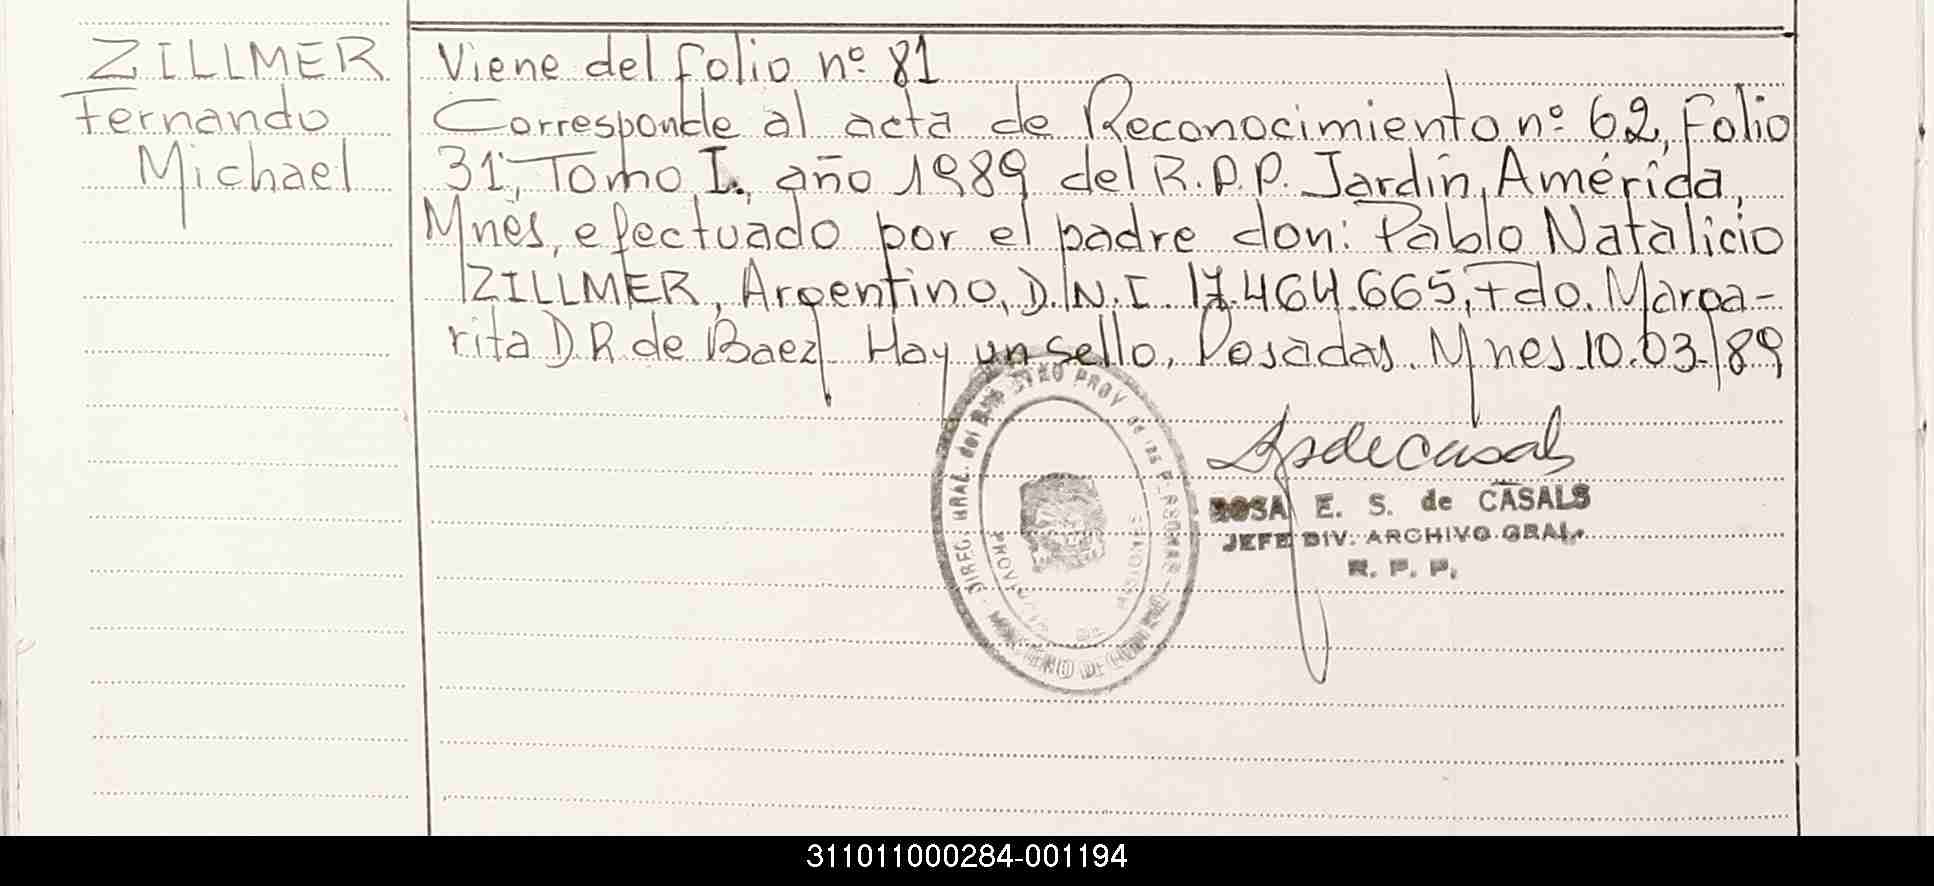 ZILLMER
Fernando
Michael
Viene del folio nº 81
Corresponde al acta de Reconocimiento nº 62, Folio
31, Tomo I., año 1989 del R.P.P. Jardín, América,
Mnes, efectuado por el padre don: Pablo Natalicio
ZILLMER, Argentino, D.N.I. 17.464.665, Fdo. Marga-
rita D.R. de Baez. Hay un sello, Posadas. Mnes 10.03.89
ROSA E. S. de CASALS
JEFE DIV. ARCHIVO GRAL.
R. P. P.
DIREC. GRAL. del PROV de las PERSONAS
PROVINCIA DE MISIONES
311011000284-001194